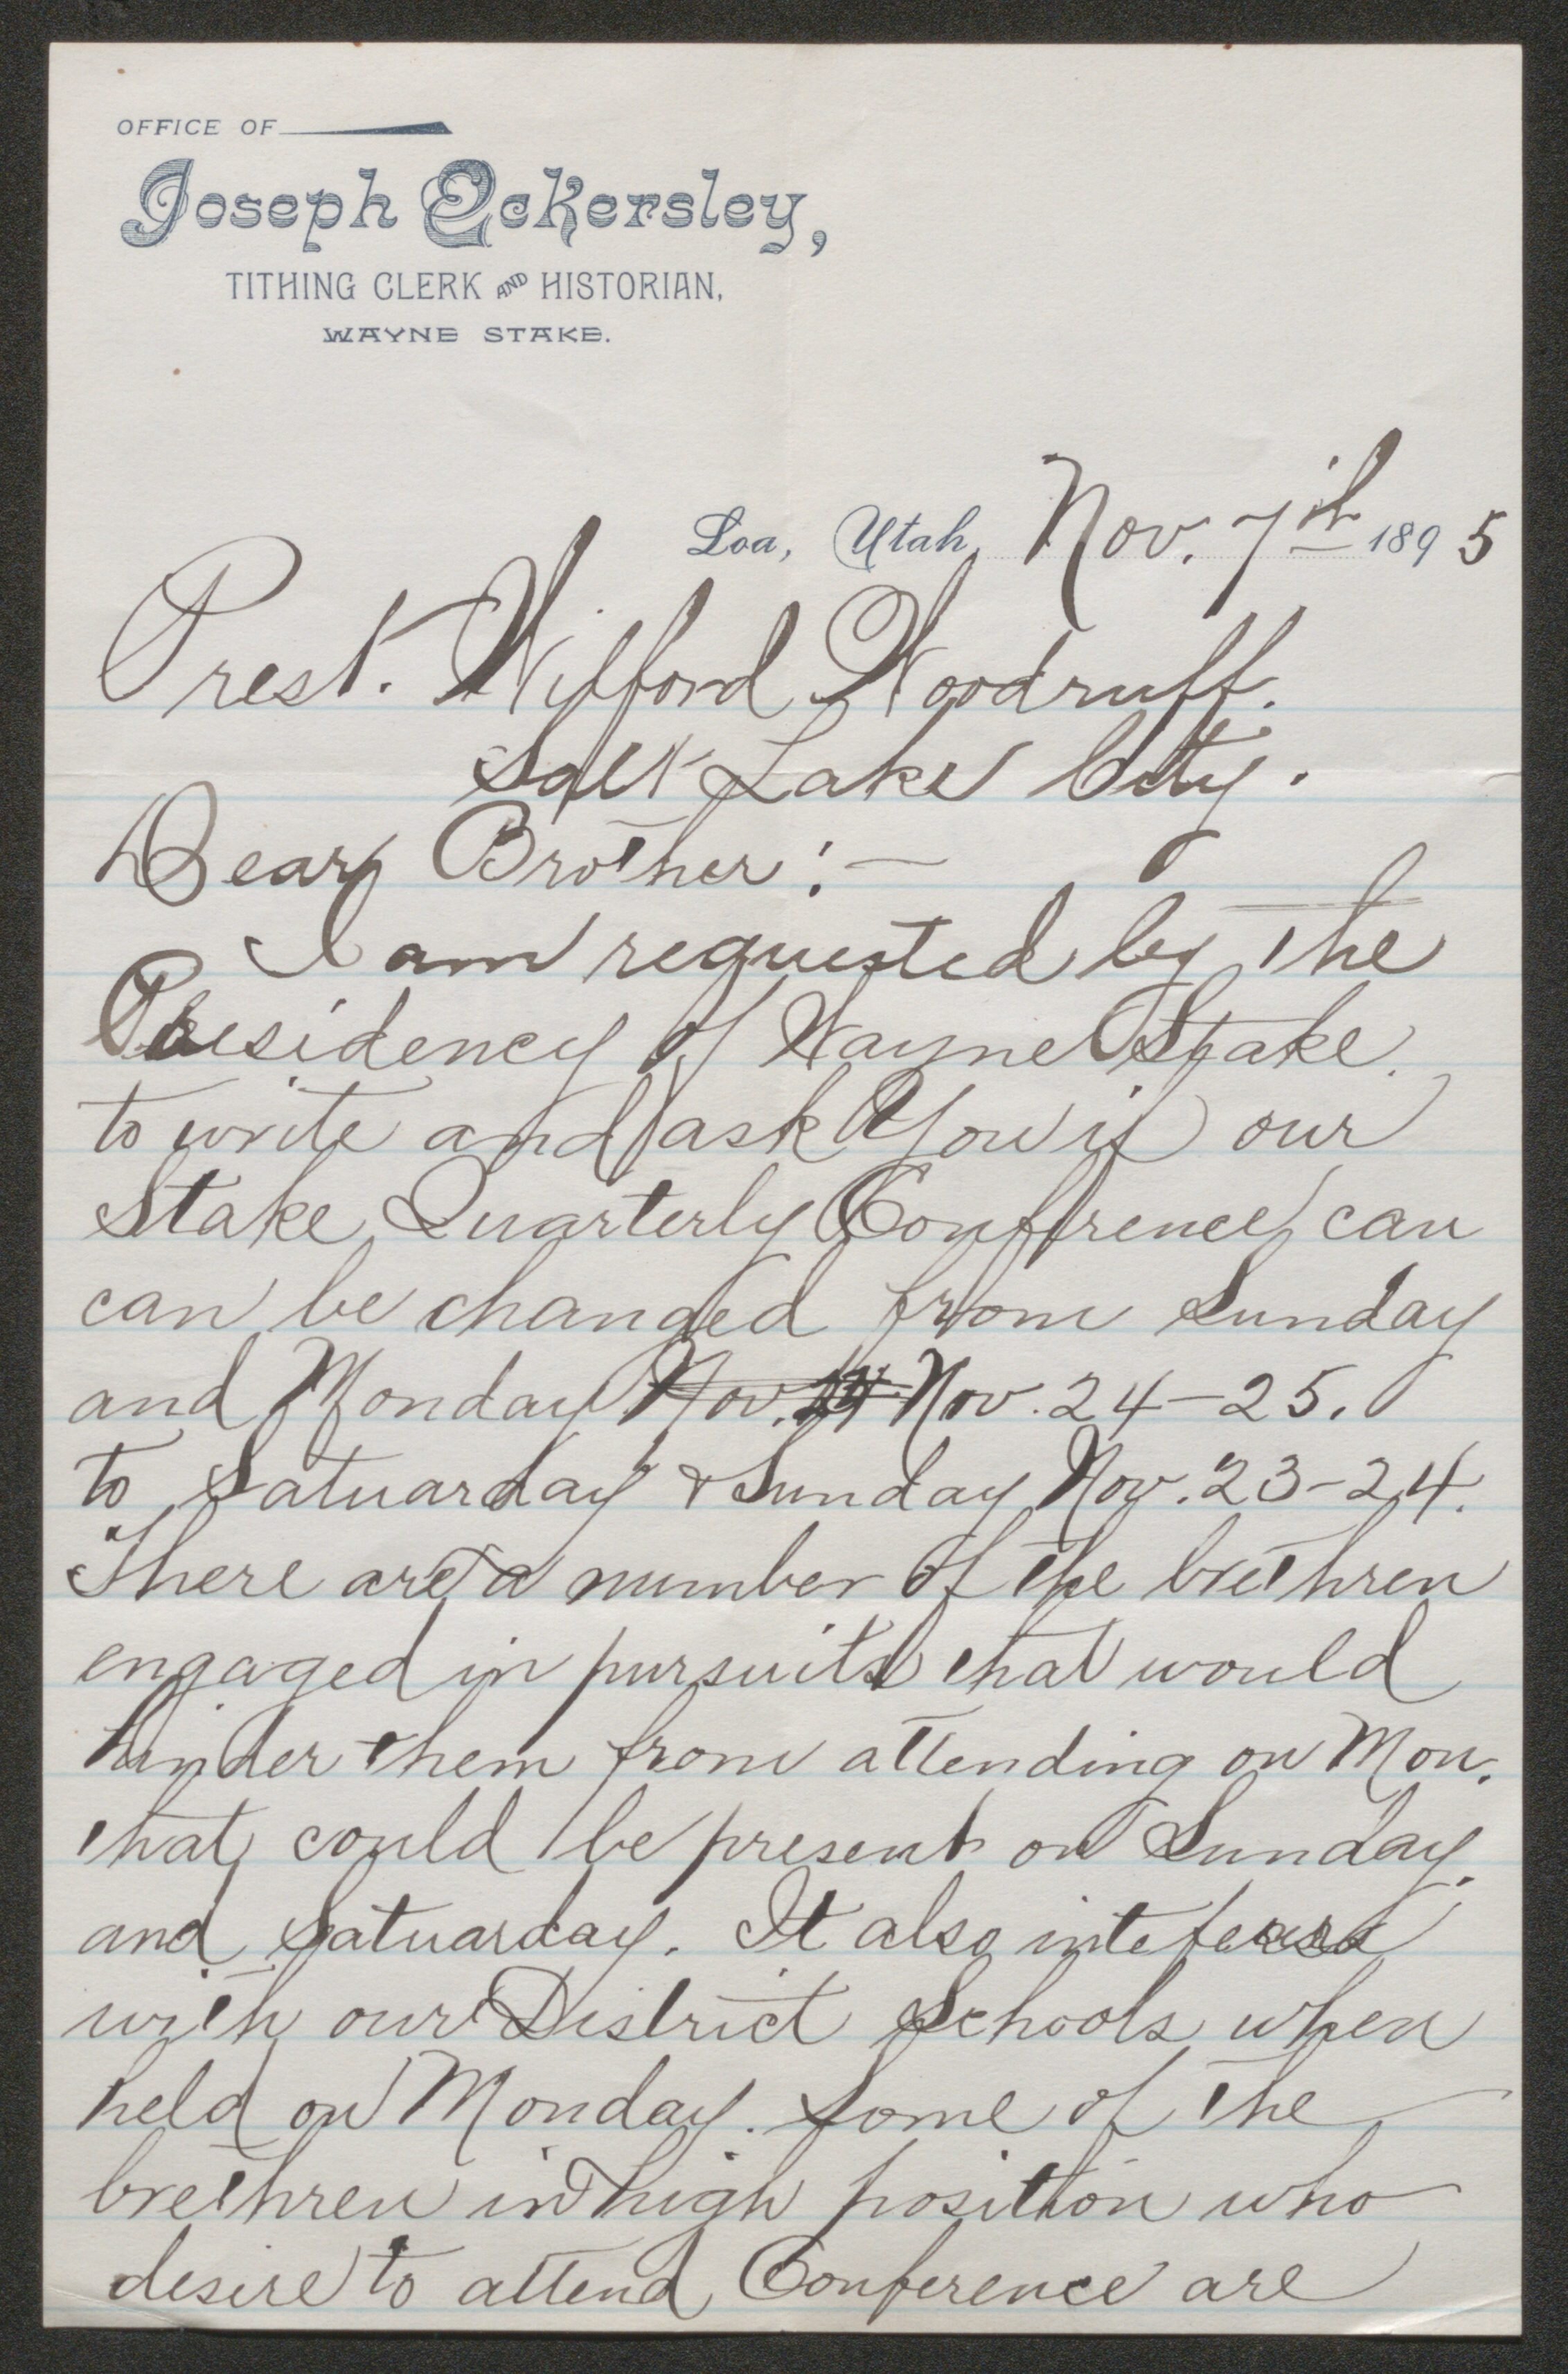 OFFICE OF
Joseph Eckersley,
TITHING CLERK AND HISTORIAN,
WAYNE STAKE.
Loa, Utah, Nov. 7th 1895
Prest. Wilford Woodruff.
Salt Lake City.
Dear Brother:—
I am requested by the
Presidency of Wayne Stake.
to write and ask You if our
Stake Quarterly Conference can
can be changed from Sunday
and Monday Nov. 24 Nov. 24-25.
to Satuarday & Sunday Nov. 23-24.
There are a number of the brethren
engaged in pursuits that would
hinder them from attending on Mon.
that could be present on Sunday.
and Satuarday. It also intefears
with our District Schools when
held on Monday. Some of the
brethren in high position who
desire to attend Conference are